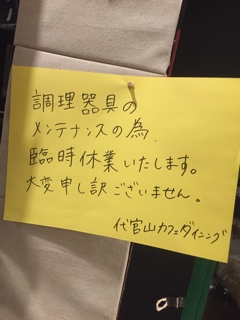 調理器具の
メンテナンスの為、
臨時休業いたします。
大変申し訳ございません。
代官山カフェダイニング